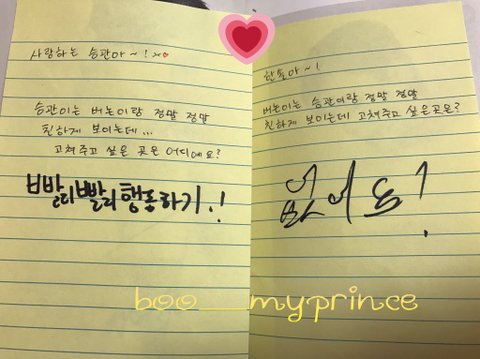 사랑하는 승관아~! xo♥
승관이는 버논이랑 정말 정말
친하게 보이는데...
고쳐주고 싶은 곳은 어디예요?
빨리빨리 행동하기!
한솔아~!
버논이는 승관이랑 정말 정말
친하게 보이는데 고쳐주고 싶은곳은?
없어요!
boo__myprince